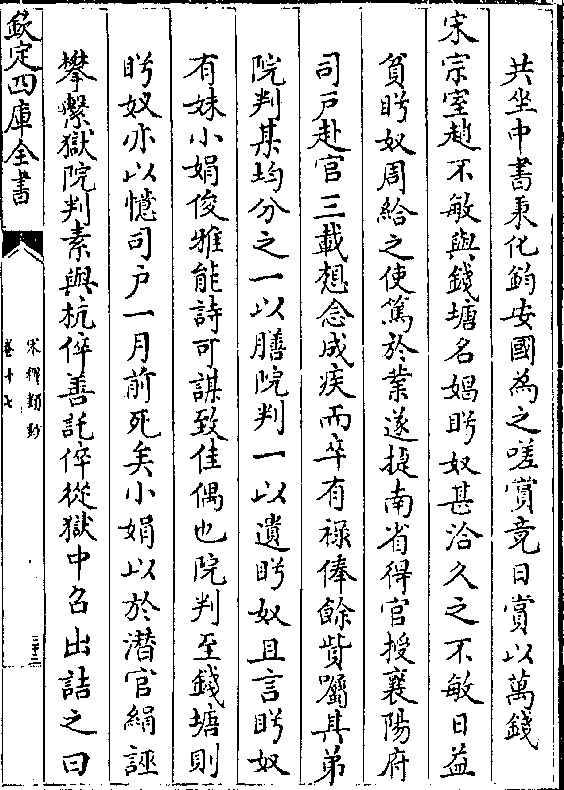 共坐中書秉化鈞安國為之嗟賞竟日賞以萬錢
宋宗室趙不敏與錢塘名娼盻奴甚洽久之不敏日益
貧盻奴周給之使篤於業遂捷南省得官授襄陽府
司戸赴官三載想念成疾而卒有禄俸餘貲囑其弟
院判某均分之一以膳院判一以遺盻奴且言盻奴
有妹小娟俊雅能詩可謀致佳偶也院判至錢塘則
盻奴亦以憶司户一月前死矣小娟以於潛官絹誣
攀繫獄院判素與杭倅善託倅從獄中召出詰之曰
欽定四庫全書
宋稗類鈔
卷十七
三十三